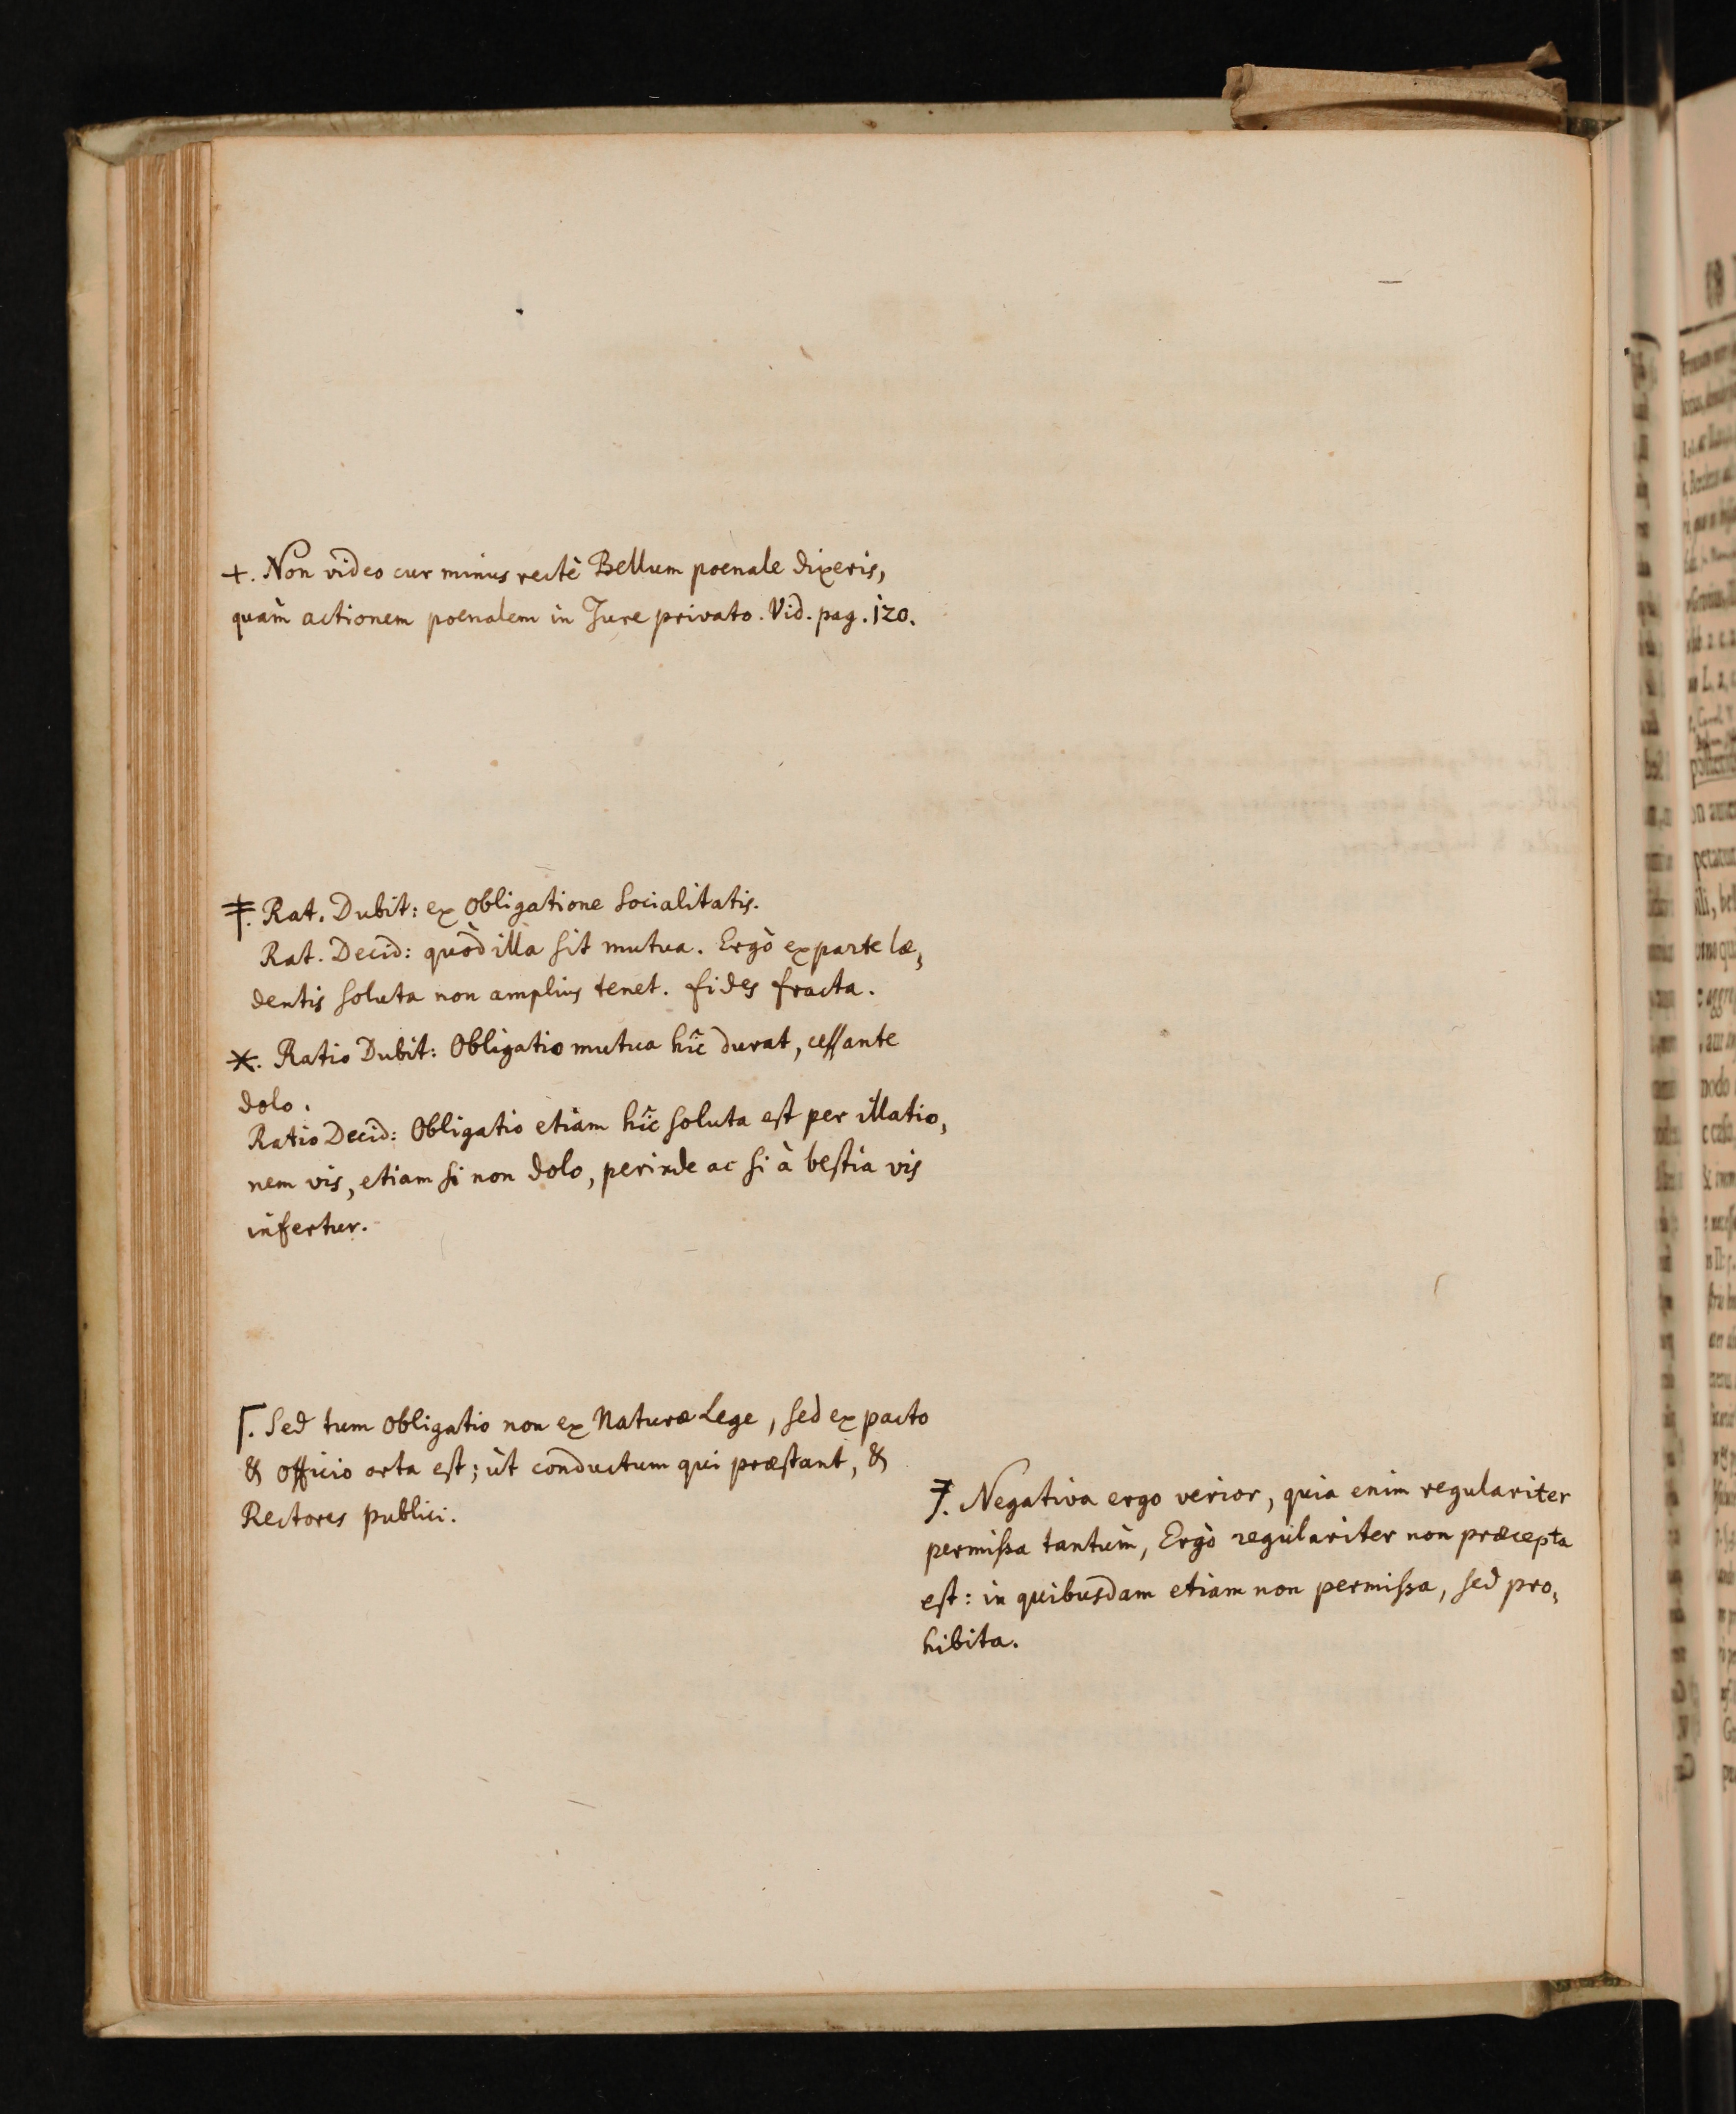 +. Non video cur minus rectè Bellum poenale dixeris,
quàm actionem poenalem in Jure privato. Vid. pag. 120.
‡. Rat. Dubit: ex Obligatione Socialitatis.
Rat. Decid: quòd illa sit mutua. Ergò ex parte læ,
dentis soluta non amplius tenet. fides fracta.
*. Ratio Dubit: Obligatio mutua hîc durat, cessante
dolo.
Ratio Decid: Obligatio etiam hîc soluta est per illatio,
nem vis, etiam si non dolo, perinde ac si à bestia vis
infertur.
Γ. Sed tum Obligatio non ex Naturæ Lege, sed ex pacto
& officio orta est; ùt conductum qui præstant, &
Rectores publici.
Ŧ. Negativa ergo verior, quia enim regulariter
permissa tantùm, Ergò regulariter non præcepta
est: in quibusdam etiam non permissa, sed pro,
hibita.